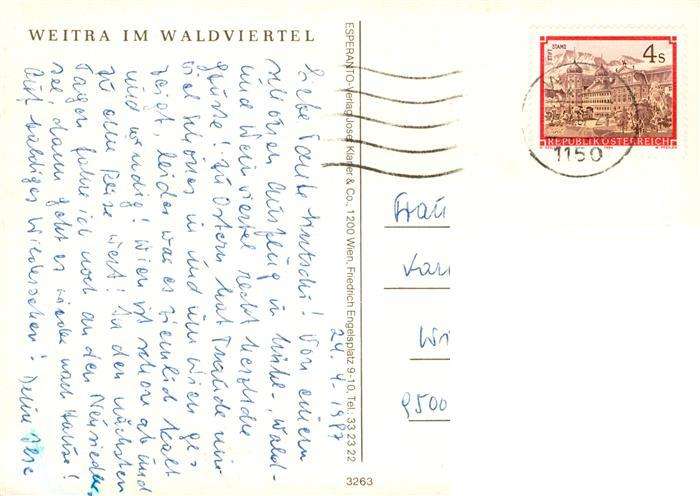 WEITRA IM WALDVIERTEL
24. 4 - 1987
Liebe Tante ! Von einem
schönen Ausflug in Mühl-, Wald-
und Weinviertel recht herzliche
Grüsse! Zu Ostern hat Traude mir
viel Schönes in und um Wien ge-
zeigt, leider war es ziemlich kalt
und windig! Wien ist schon ab und
zu eine Reise wert! In den nächsten
Tagen fahre ich noch an den Neusiedler-
see, dann geht es wieder nach Hause!
Auf baldiges Wiedersehen! Deine Ilse
ESPERANTO-Verlag Josef Klaner & Co., 1200 Wien, Friedrich Engelsplatz 9-10, Tel. 33 23 22
3263
STIFT STAMS
4 S
REPUBLIK ÖSTERREICH
1150
Frau
Wi
9500